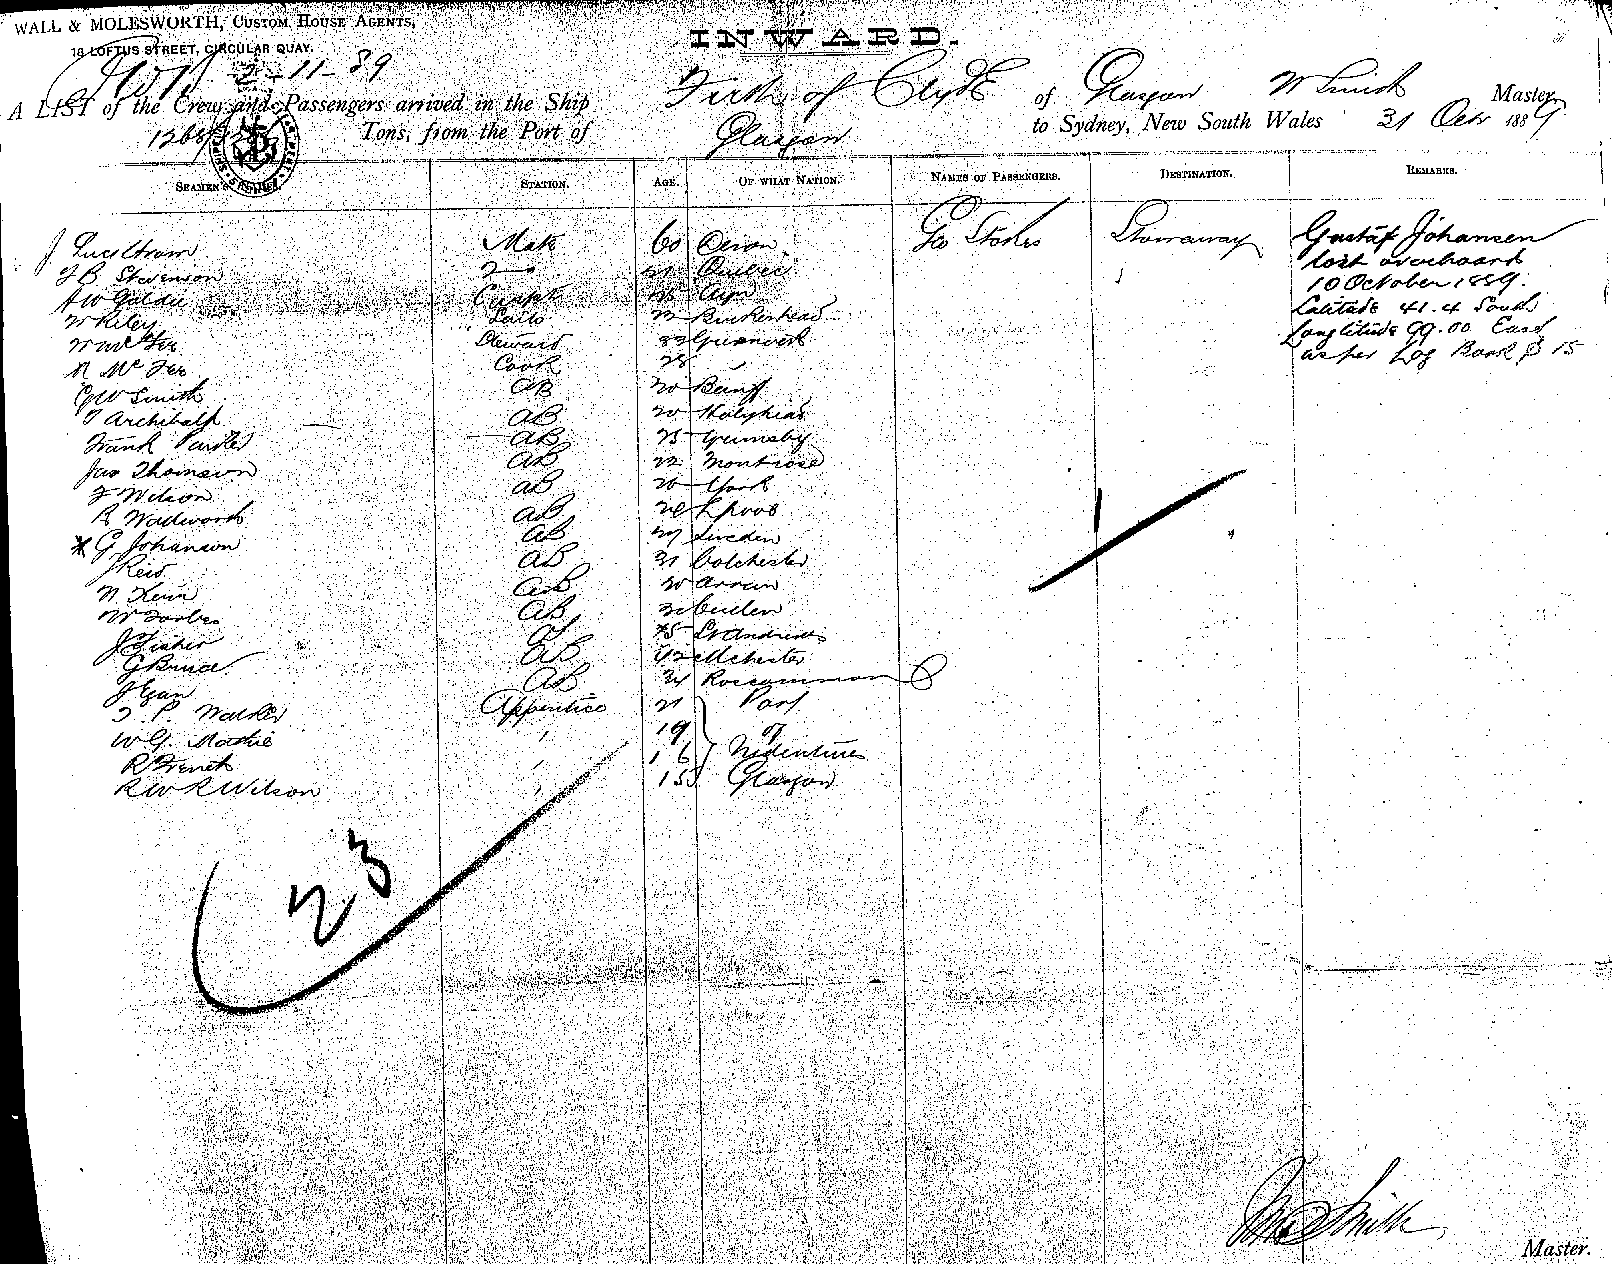 WALL & MOLESWORTH, CUSTOM HOUSE AGENTS,
18 LOFTUS STREET, CIRCULAR QUAY.
2-11-89
INWARD.
A LIST of the Crew and Passengers arrived in the Ship Firth of Clyde of Glasgow W Smith Master
Tons, from the Port of Glasgow to Sydney, New South Wales 31 Octr 1889
SEAMEN'S STATION. AGE. OF WHAT NATION. NAMES OF PASSENGERS. DESTINATION. REMARKS.
J. Mate 60 Devon Geo Stokes Stowaway Gustaf Johansen
J B Stevenson 2 Quebec lost overboard
A W Goldie Carptr Ayr 10 October 1889.
W Riley Sails Birkenhead Latitude 41.4 South
Steward Greenock Longtitude 99.00 East
N McFee Cook as per Log Book p 15
G W Smith AB 20 Banff
T Archibald AB 20 Holyhead
Frank AB Grimsby
Jas Thomson AB 22 Montrose
F Wilson AB York
B Wadworth AB Lpool
* G Johanson AB 27 Sweden
J Reid AB 21 Colchester
AB 20 Arran
W Forbes AB Cullen
J Fisher St Andrews
G Bruce AB Mchester
J Egan AB Roscommon
T. P. Walker Apprentice 21 Port
W G. Mackie " 19 of
R French " 16 Indenture
R W R Wilson " 15 Glasgow
23
Smith
Master.